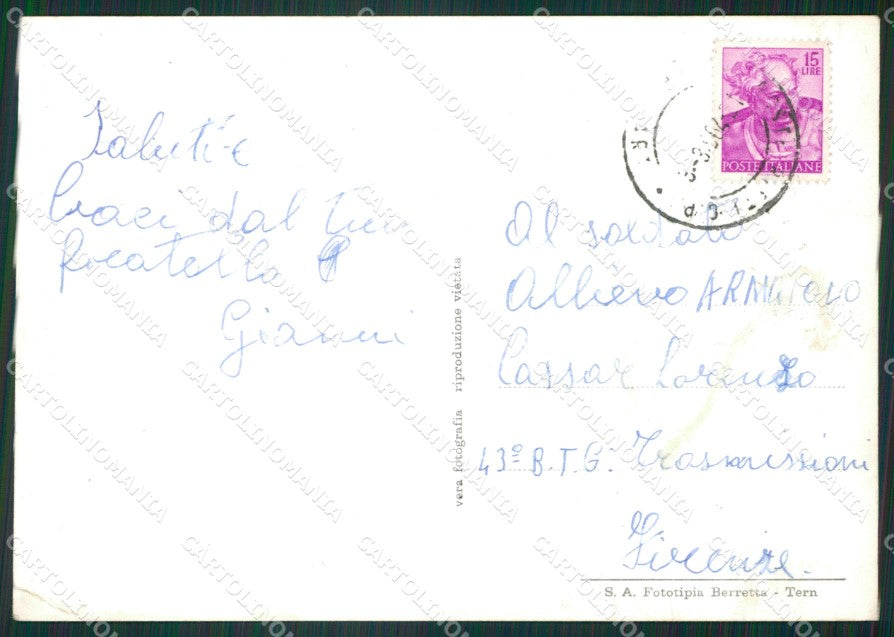 Saluti e
baci dal tuo
fratello
Gianni
vera fotografia riproduzione vietata
15
LIRE
POSTE ITALIANE
Al soldato
Allievo
Cassar Lorenzo
43º B.T.G. Trasmissioni
Firenze.
S. A. Fototipia Berretta - Tern
CARTOLINOMANIA